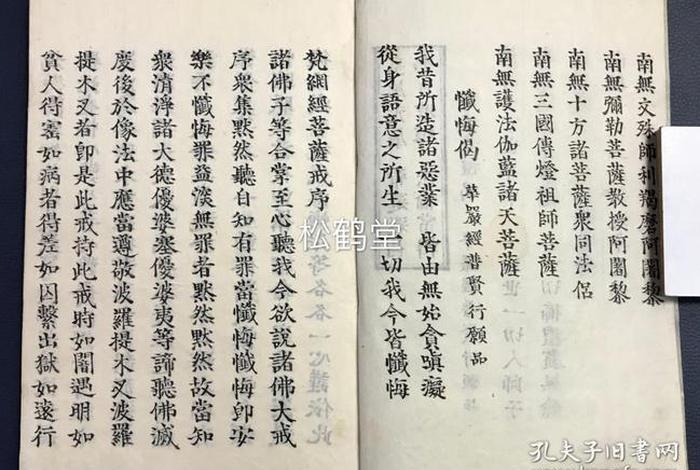 南無文殊師利羯磨阿闍黎
南無彌勒菩薩教授阿闍黎
南無十方諸菩薩衆同法侶
南無三國傳燈祖師菩薩
南無護法伽藍諸天菩薩
懺悔偈 華嚴經普賢行願品
我昔所造諸惡業 皆由無始貪嗔癡
從身語意之所生 一切我今皆懺悔
梵網經菩薩戒序
諸佛子等合掌至心聽我今欲說諸佛大戒
序衆集默然聽自知有罪當懺悔懺悔即安
樂不懺悔罪益深無罪者默然默然故當知
衆清淨諸大德優婆塞優婆夷等諦聽佛滅
度後於像法中應當尊敬波羅提木叉波羅
提木叉者即是此戒持此戒時如闇遇明如
貧人得寶如病者得差如囚繫出獄如遠行
松鹤堂
孔夫子旧书网